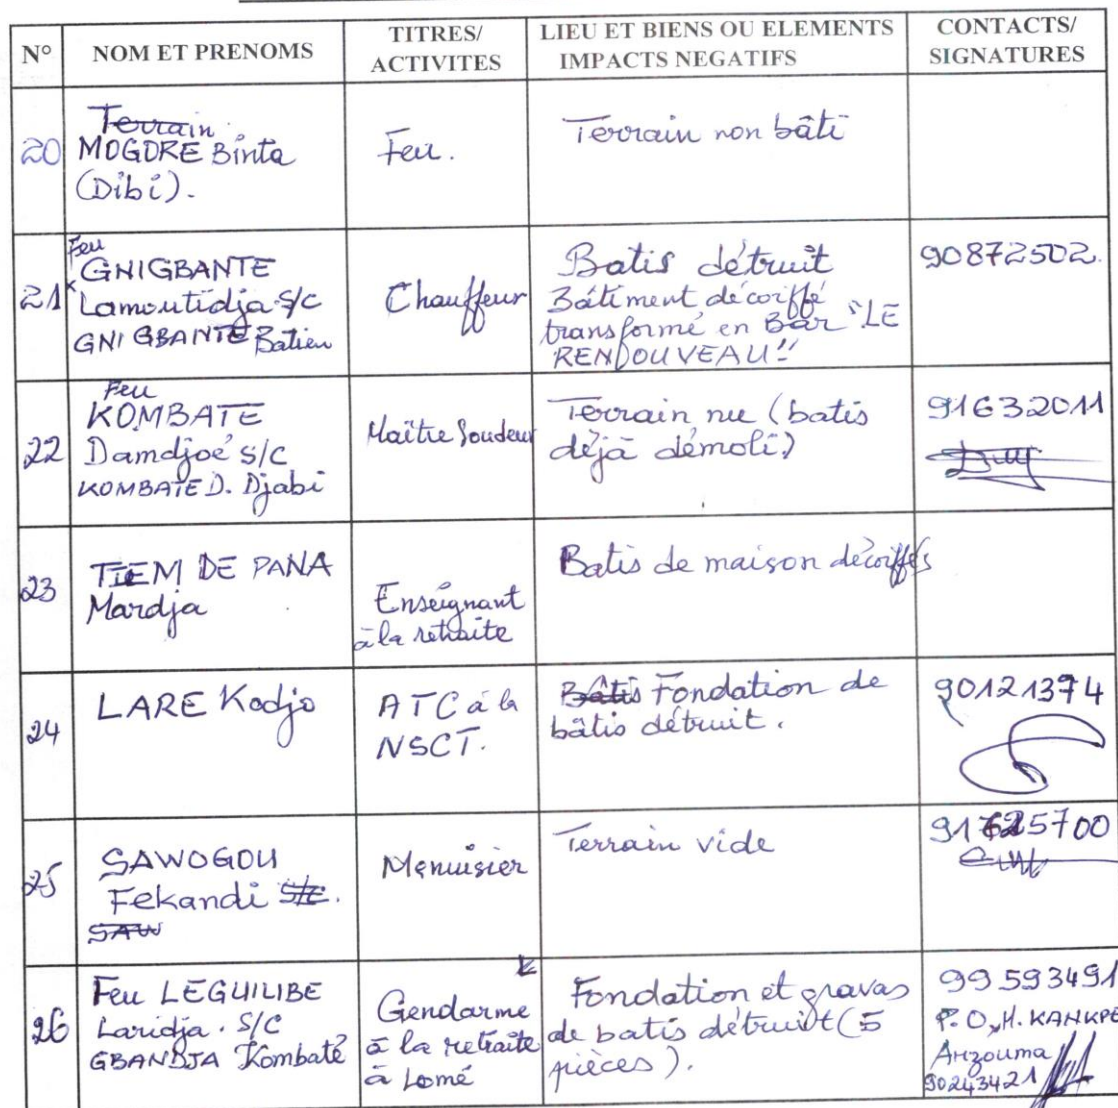 N°
NOM ET PRENOMS
TITRES/
ACTIVITES
LIEU ET BIENS OU ELEMENTS
IMPACTS NEGATIFS
CONTACTS/
SIGNATURES
20
Terrain
MOGORE Binta
(Dibi).
Feu.
Terrain non bâti
21
Feu
GNIGBANTE
Lamoutidja s/c
GNIGBANTE Batien
Chauffeur
Batis détruit
Bâtiment décoiffé
transformé en Bar "LE
RENDOUVEAU"
90872502.
22
Feu
KOMBATE
Damdjoé s/c
KOMBATE D. Djabi
Maître Soudeur
Terrain nu (batis
déjà démoli)
91632011
23
TIEM DE PANA
Mardja
Enseignant
à la retraite
Batis de maison décoiffés
24
LARE Kodjo
ATC à la
NSCT.
Bâtis Fondation de
bâtis détruit.
90121374
25
SAWOGOU
Fekandi S/C.
SAW
Menuisier
Terrain vide
26
Feu LEGUILIBE
Laridja. S/C
GBANDJA Kombaté
Gendarme
à la retraite
à Lomé
Fondation et gravas
de batis détruit (5
pièces).
99593491
P.O, H. KANKPE
Arzouma
90243421